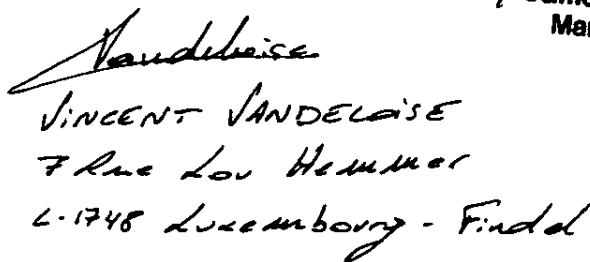 Mar
Vandeloise
VINCENT VANDELOISE
7 Rue Lou Hemmer
L-1748 Luxembourg - Findel